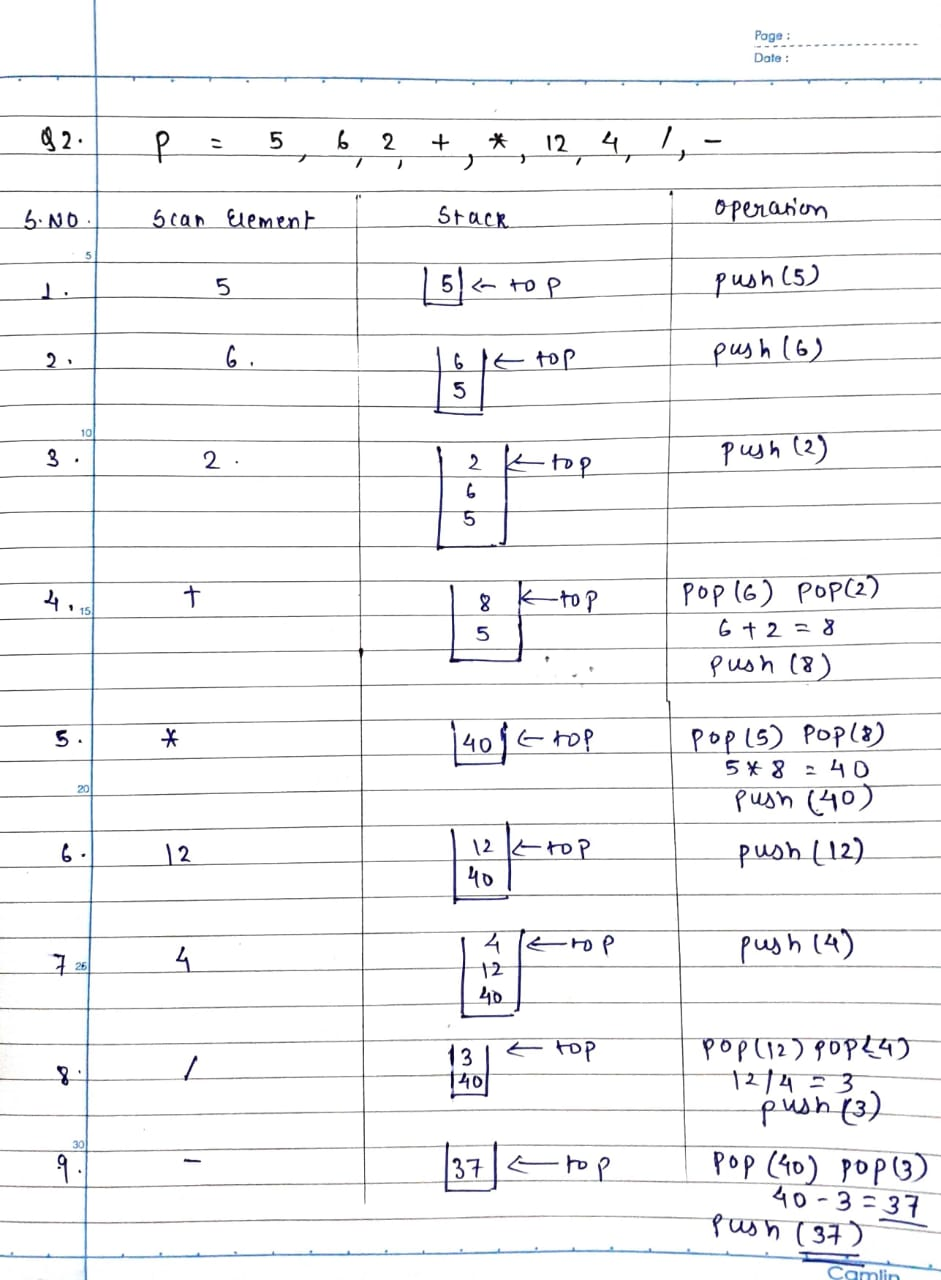 Page :
Date :
Q2. P = 5, 6, 2, +, *, 12, 4, /, -
S.NO. Scan Element Stack Operation
5
1. 5 5 ← top push(5)
2. 6. 6 ← top push(6)
5
10
3. 2. 2 ← top push(2)
6
5
4. + 8 ← top POP(6) POP(2)
15
5 6 + 2 = 8
push(8)
5. * 40 ← top POP(5) POP(8)
5 * 8 = 40
20
push(40)
6. 12 12 ← top push(12)
40
7 4 4 ← top push(4)
25
12
40
8. / 3 ← top POP(12) POP(4)
40 12/4 = 3
push(3)
30
9. - 37 ← top POP(40) POP(3)
40 - 3 = 37
push(37)
Camlin